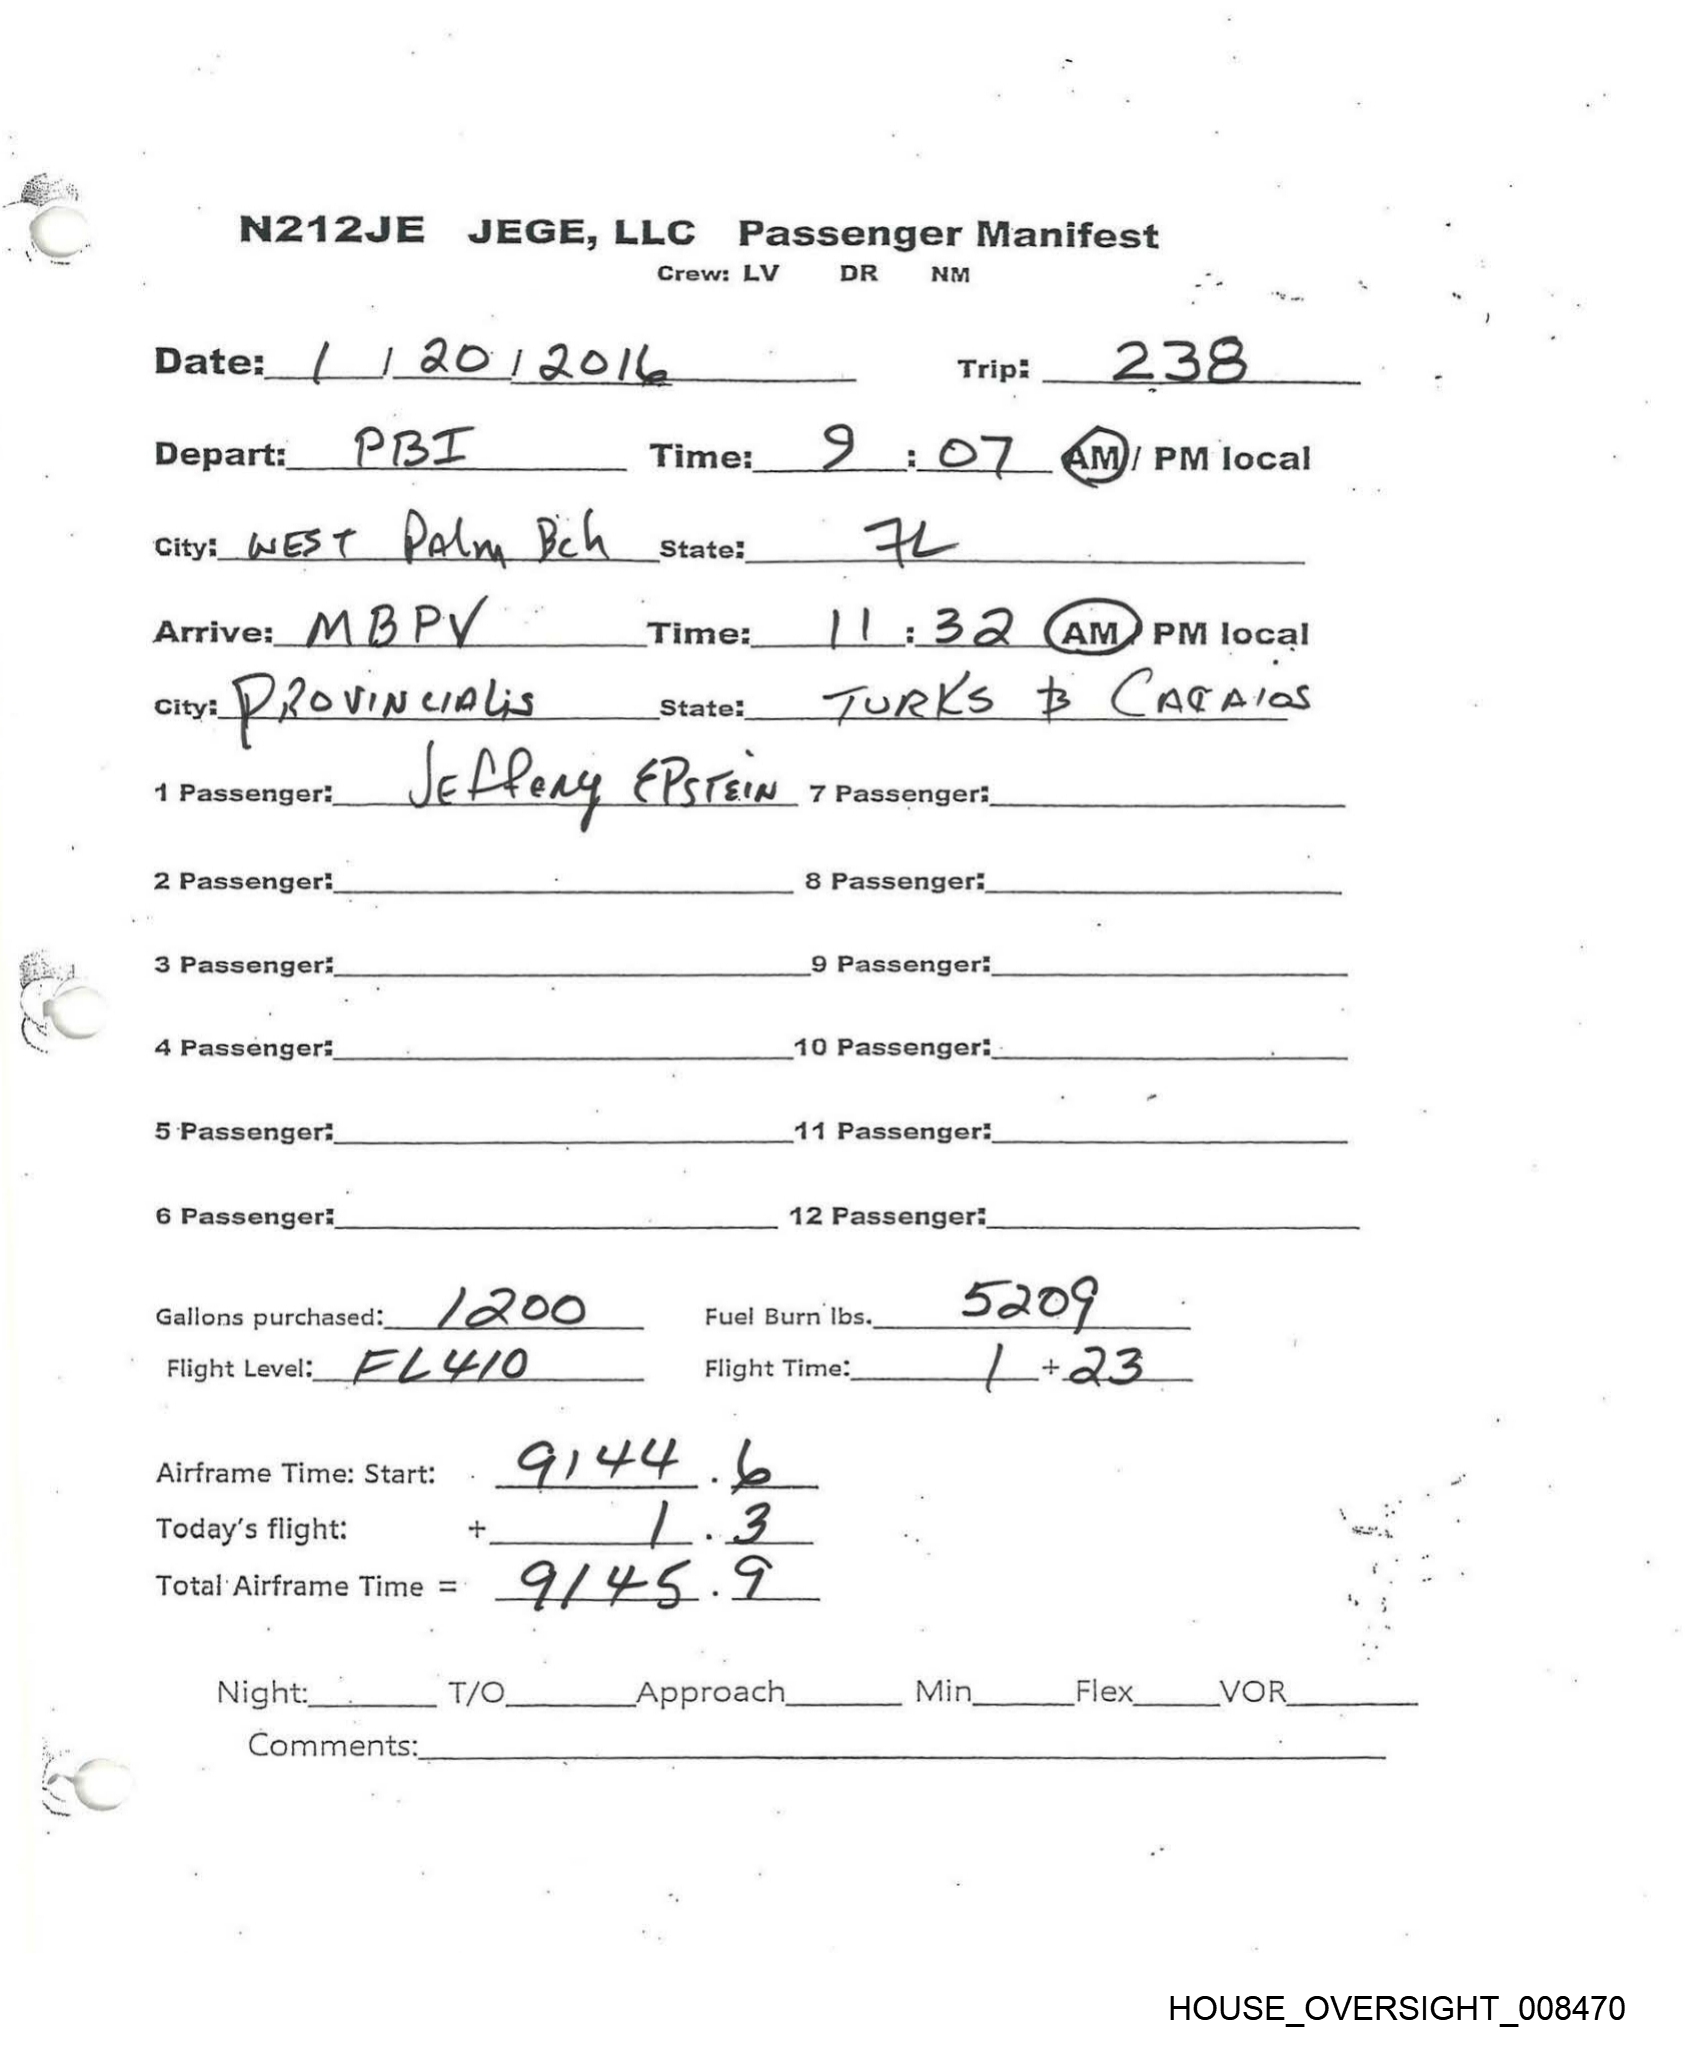 N212JE JEGE, LLC Passenger Manifest
Crew: LV DR NM
Date: 1 / 20 / 2016 Trip: 238
Depart: PBI Time: 9 : 07 AM / PM local
City: WEST PALM Bch State: FL
Arrive: MBPV Time: 11 : 32 AM / PM local
City: PROVINCIALIS State: TURKS & CACAIOS
1 Passenger: JEFFERY EPSTEIN 7 Passenger:
2 Passenger: 8 Passenger:
3 Passenger: 9 Passenger:
4 Passenger: 10 Passenger:
5 Passenger: 11 Passenger:
6 Passenger: 12 Passenger:
Gallons purchased: 1200 Fuel Burn lbs. 5209
Flight Level: FL410 Flight Time: 1 + 23
Airframe Time: Start: 9144 . 6
Today's flight: + 1 . 3
Total Airframe Time = 9145 . 9
Night: T/O Approach Min Flex VOR
Comments:
HOUSE_OVERSIGHT_008470